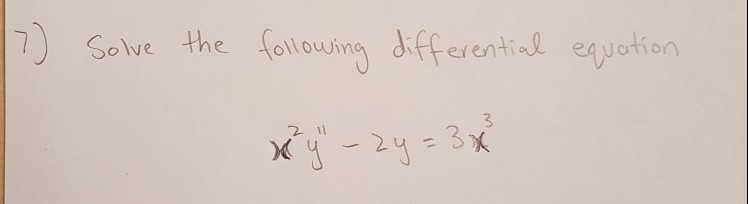 7) Solve the following differential equation
x²y" - 2y = 3x³